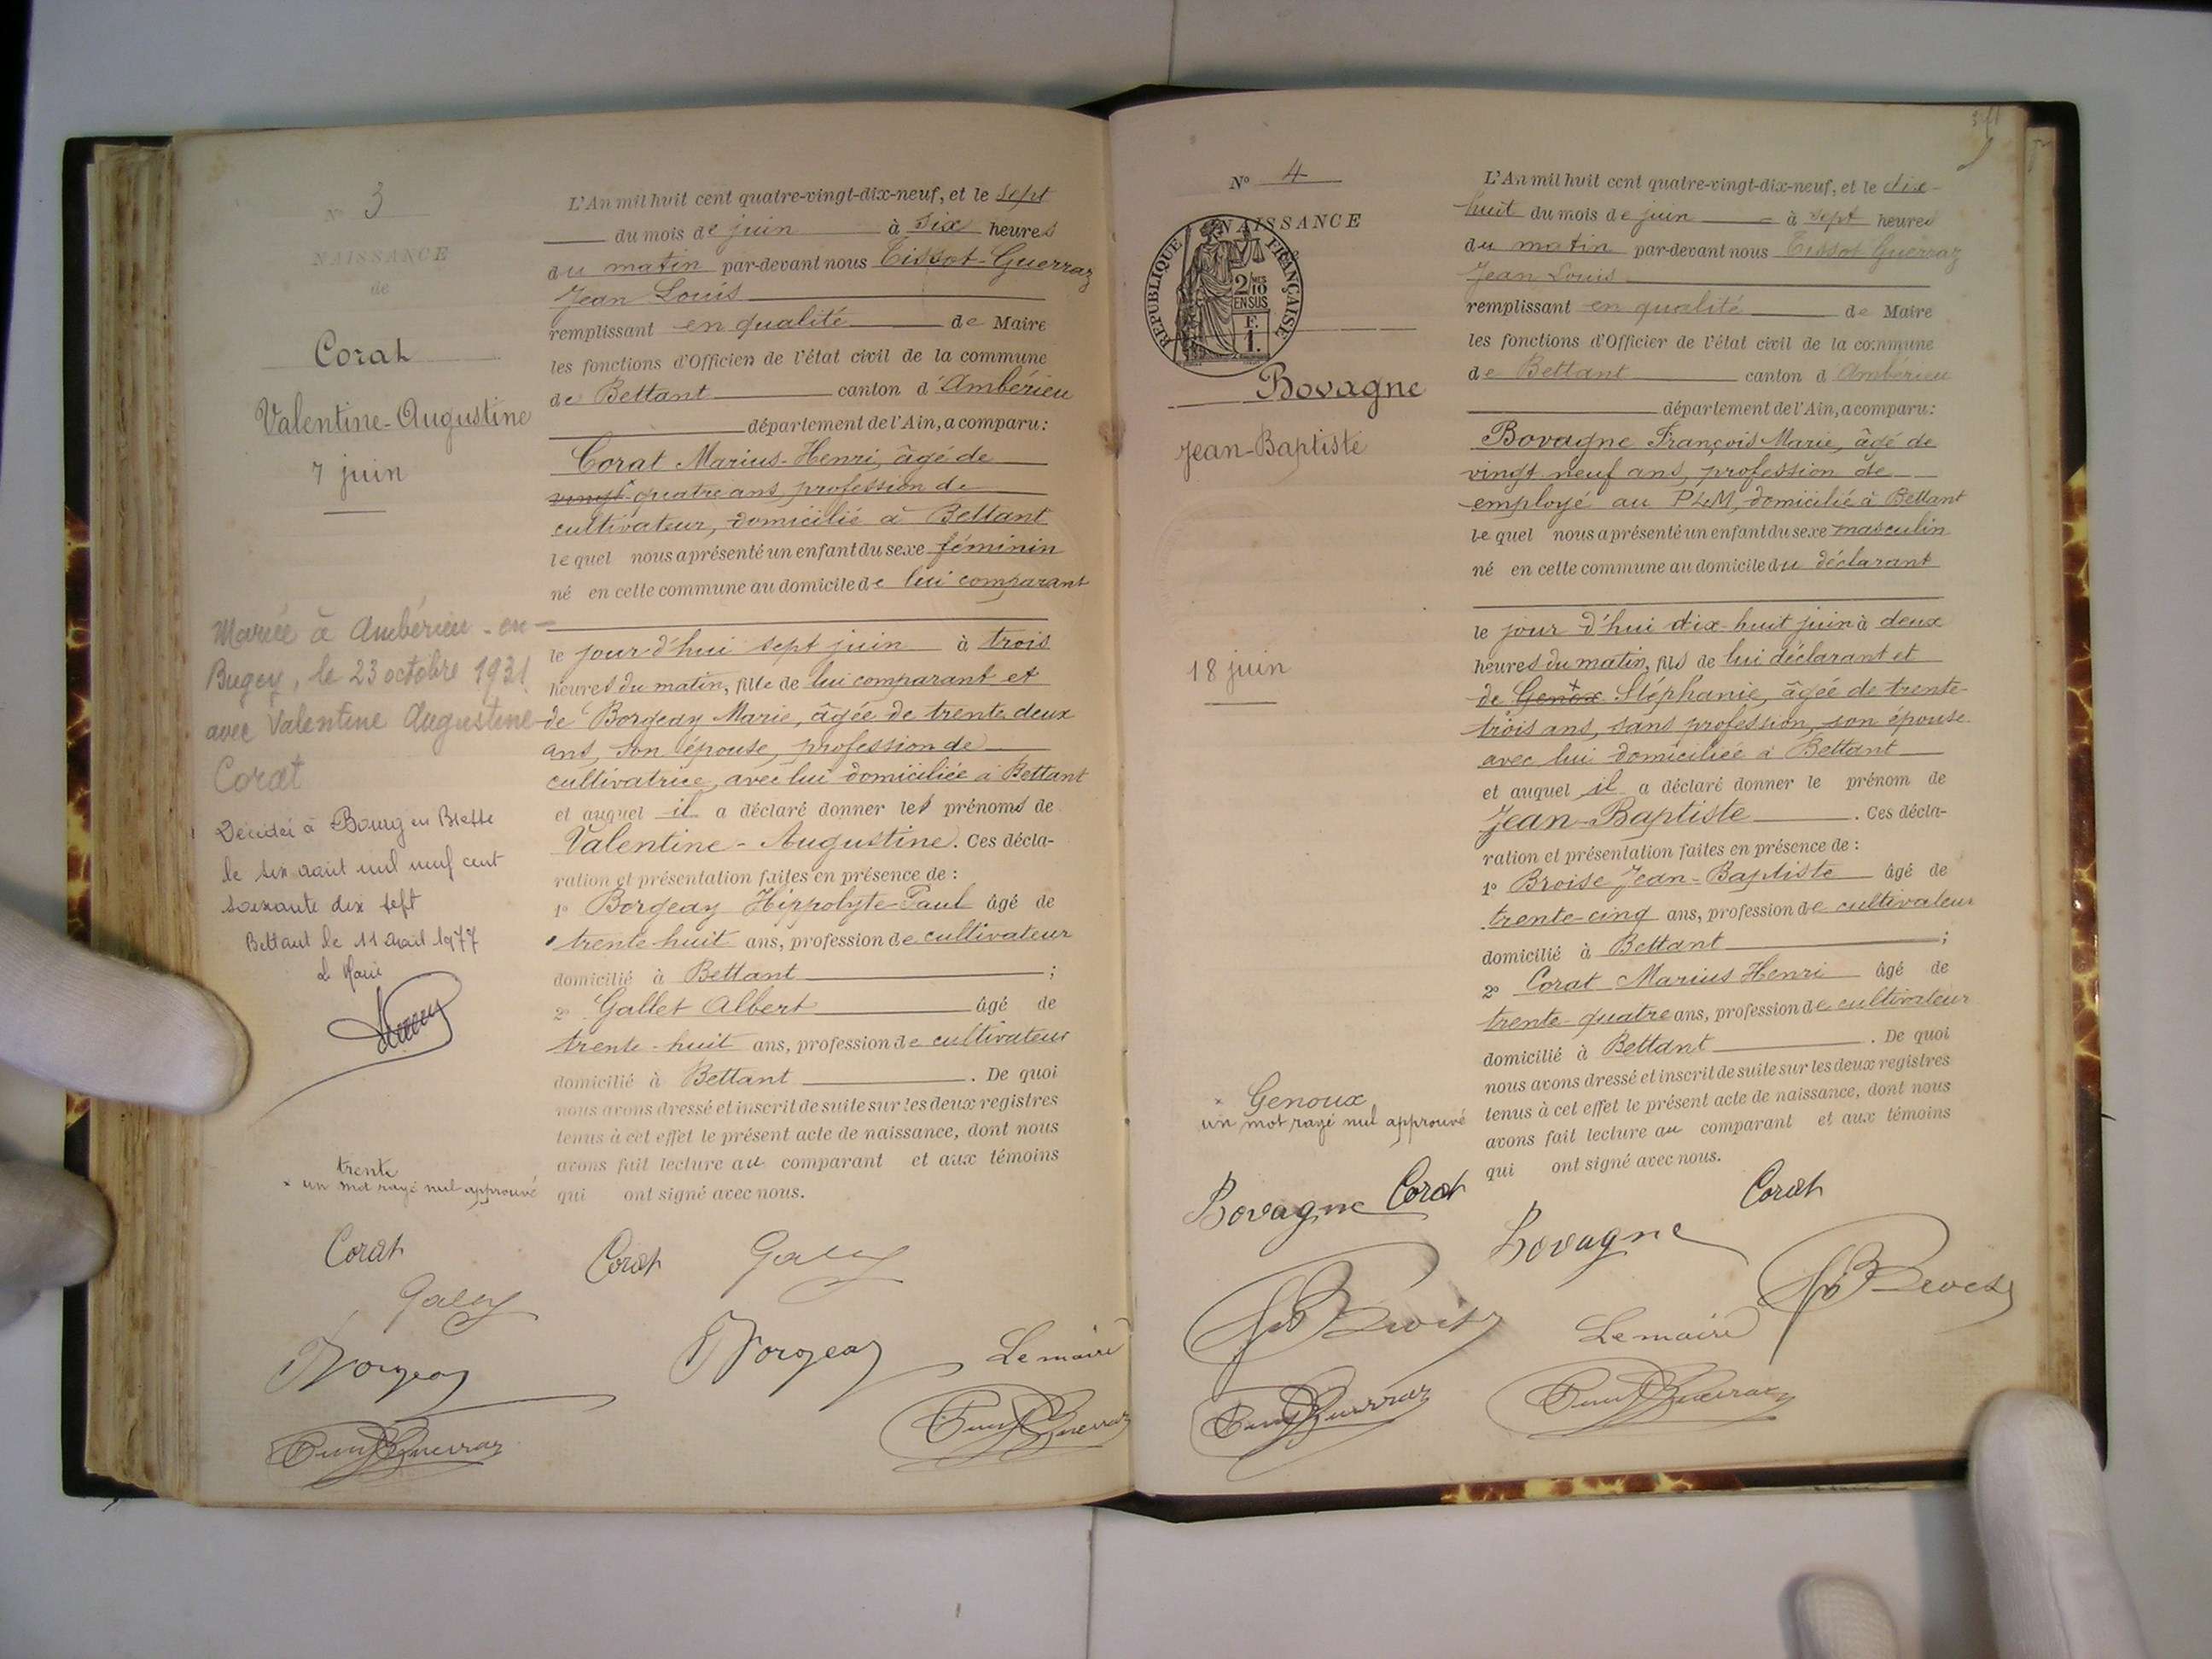 N° 3
NAISSANCE
de
Corat
Valentine-Augustine
7 juin
Mariée à Ambérieu-en-
Bugey, le 23 octobre 1931
avec Valentine Augustine
Corat
Décédée à Bourg en Bresse
le six août mil neuf cent
soixante dix sept
Bettant le 11 août 1977
Le Maire
trente
× un mot rayé nul approuvé
L'An mil huit cent quatre-vingt-dix-neuf, et le sept
du mois de juin à six heures
du matin par-devant nous Tissot-Guerraz
Jean Louis
remplissant en qualité de Maire
les fonctions d'Officier de l'état civil de la commune
de Bettant canton d'Ambérieu
département de l'Ain, a comparu:
Corat Marius-Henri, âgé de
vingt quatre ans, profession de
cultivateur, domicilié à Bettant
le quel nous a présenté un enfant du sexe féminin
né en cette commune au domicile de lui comparant
le jour d'hui sept juin à trois
heures du matin, fille de lui comparant et
de Borgeay Marie, âgée de trente deux
ans, son épouse, profession de
cultivatrice, avec lui domiciliée à Bettant
et auquel il a déclaré donner les prénoms de
Valentine-Augustine. Ces décla-
ration et présentation faites en présence de :
1° Borgeay Hippolyte-Paul âgé de
trente huit ans, profession de cultivateur
domicilié à Bettant ;
2° Gallet Albert âgé de
trente-huit ans, profession de cultivateur
domicilié à Bettant . De quoi
nous avons dressé et inscrit de suite sur les deux registres
tenus à cet effet le présent acte de naissance, dont nous
avons fait lecture au comparant et aux témoins
qui ont signé avec nous.
Corat
Corat
Borgeay
Borgeay
Le maire
N° 4
NAISSANCE
RÉPUBLIQUE FRANÇAISE
2/10
EN SUS
F.
1.
Bovagne
Jean-Baptiste
18 juin
× Genoux
un mot rayé nul approuvé
L'An mil huit cent quatre-vingt-dix-neuf, et le dix-
huit du mois de juin à sept heures
du matin par-devant nous Tissot Guerraz
Jean Louis
remplissant en qualité de Maire
les fonctions d'Officier de l'état civil de la commune
de Bettant canton d Ambérieu
département de l'Ain, a comparu:
Bovagne François Marie, âgé de
vingt neuf ans, profession de
employé au PLM, domicilié à Bettant
le quel nous a présenté un enfant du sexe masculin
né en cette commune au domicile du déclarant
le jour d'hui dix-huit juin à deux
heures du matin, fils de lui déclarant et
de Genox Stéphanie, âgée de trente-
trois ans, sans profession, son épouse
avec lui domiciliée à Bettant
et auquel il a déclaré donner le prénom de
Jean-Baptiste . Ces décla-
ration et présentation faites en présence de :
1° Broise Jean-Baptiste âgé de
trente-cinq ans, profession de cultivateur
domicilié à Bettant ;
2° Corat Marius Henri âgé de
trente-quatre ans, profession de cultivateur
domicilié à Bettant . De quoi
nous avons dressé et inscrit de suite sur les deux registres
tenus à cet effet le présent acte de naissance, dont nous
avons fait lecture au comparant et aux témoins
qui ont signé avec nous.
Bovagne Corat
Bovagne
Corat
Le maire